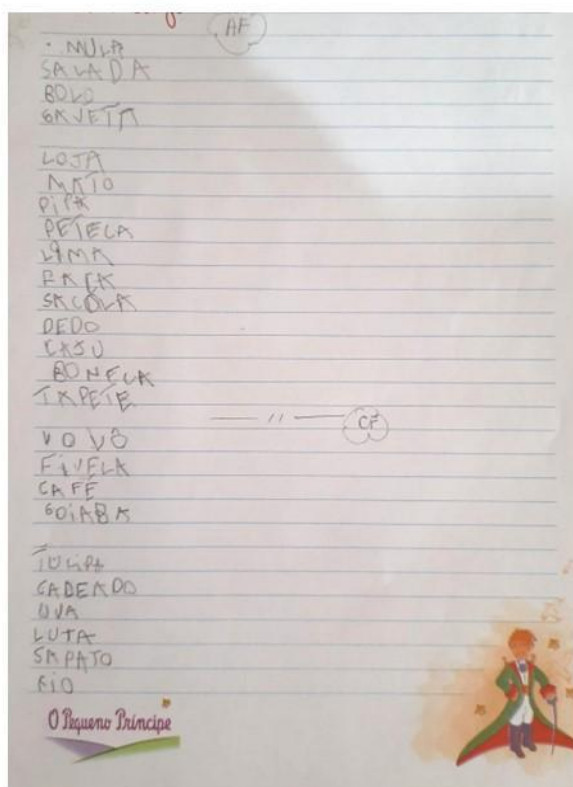 AF
• MULA
SALADA
BOLO
GAVETA
LOJA
MATO
PiPA
PETECA
LIMA
FACA
SACOLA
DEDO
CAJU
BONECA
TAPETE
— " — CF
VOVÔ
FiVELA
CAFÉ
GOiABA
TULiPA
CADEADO
UVA
LUTA
SAPATO
RiO
O Pequeno Príncipe